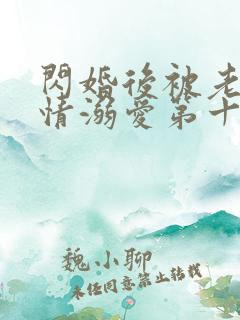 閃婚後被老
情溺愛第十
魏小聊
未经同意禁止转载